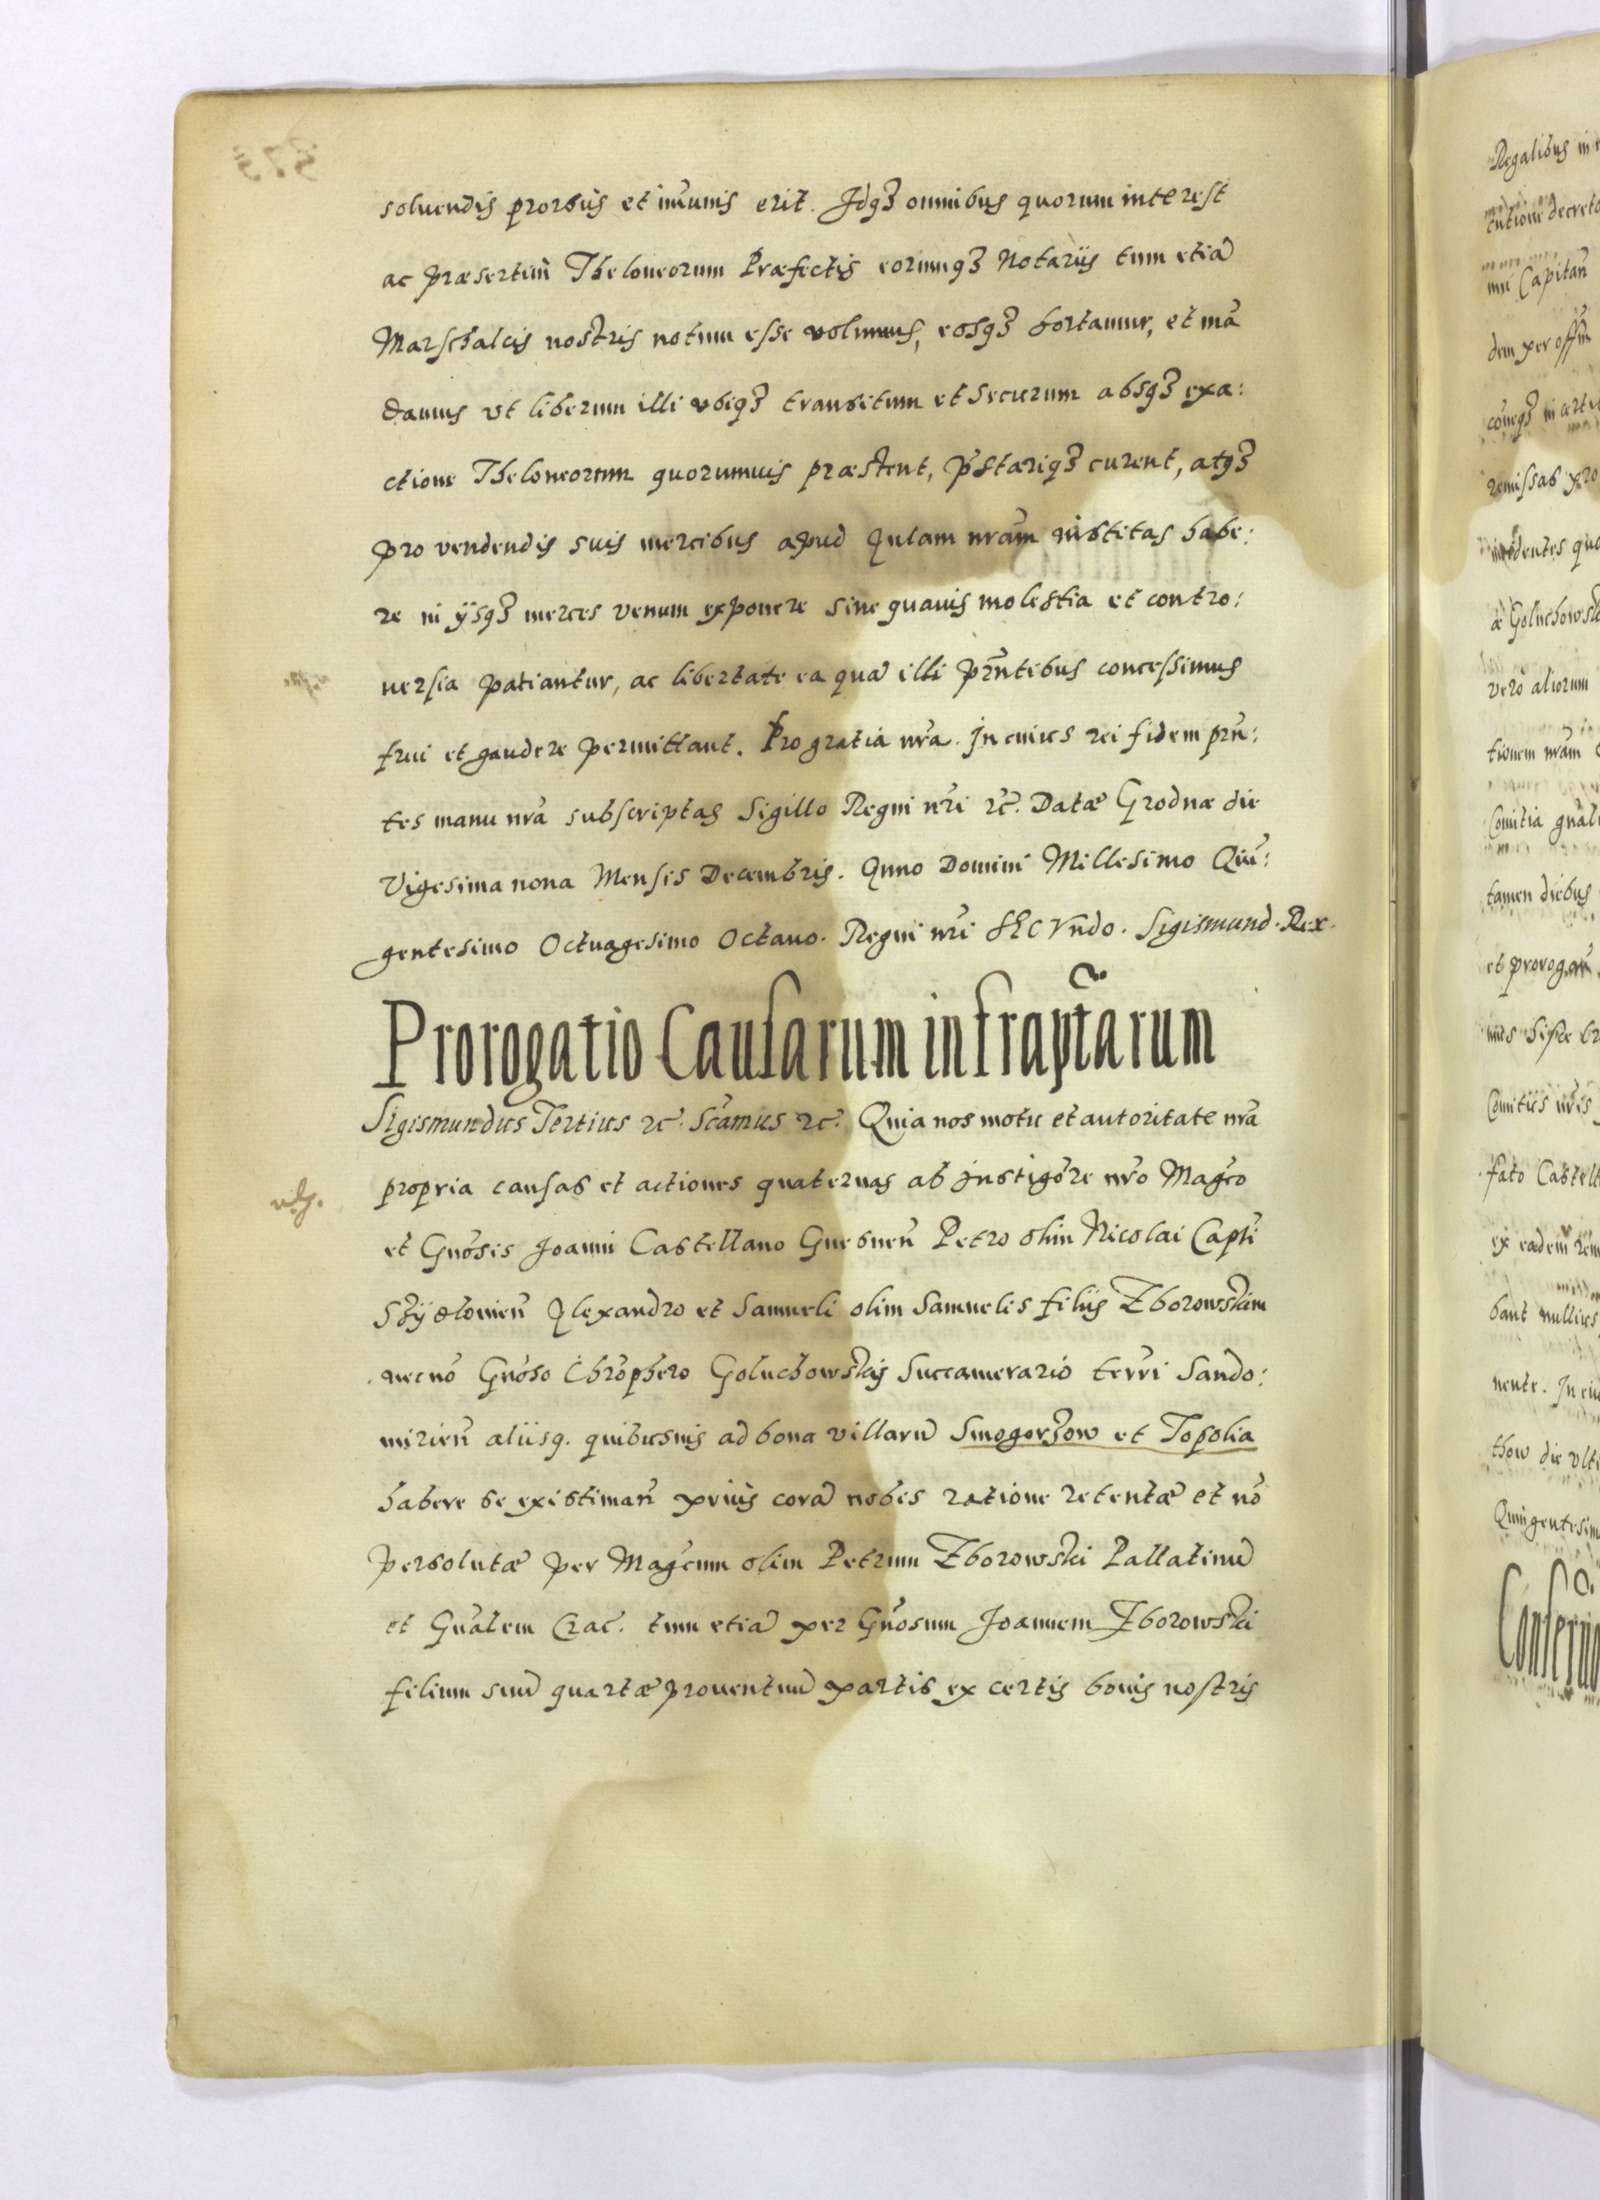 soluendis prorsus et im̃unis erit. Idq3 omnibus quorum interest
ac præsertim Theloneorum Præfectis eorumq3 Notariis tum etiã
Marschalcis nostris notum esse volumus, eosq3 hortamur, et mã
damus vt liberum illi vbiq3 transitum et securum absq3 exa:
ctione Theloneorum quorumuis præstent, p̃stariq3 curent, atq3
pro vendendis suis mercibus apud Aulam nrãm institas habe:
re in ÿsq3 merces venum exponere sine quauis molestia et contro:
uersia patiantur, ac libertate ea quã illi prñtibus concessimus
frui et gaudere permittant. Pro gratia nrã. In cuius rei fidem prñ:
tes manu nrã subscriptas Sigillo Regni nrĩ rc̃. Datæ Grodnæ die
Vigesima nona Mensis Decembris. Anno Domini Millesimo Quĩ:
gentesimo Octuagesimo Octauo. Regni nrĩ secundo. Sigismund. Rex.
Prorogatio Causarum infrapt̃arum
Sigismundus Tertius rc̃. Sc̃amus rc̃. Quia nos motu et autoritate nrã
propria causas et actiones quaternas ab Instigõre nrõ Mag̃co
et Gnõsis Joanni Castellano Gnesneñ Petro olim Nicolai Capti
Szÿdlouieñ Alexandro et Samueli olim Samuelis filiis Zborowskim
necnõ Gnõso Chrõphero Goluchowskij Succamerario terri Sando:
mirieñ aliisq. quibusuis ad bona villarũ Smogorzow et Topolia
habere se existimañ prius corã nobis ratione retentæ et nõ
persolutæ per Mag̃cum olim Petrum Zborowski Pallatinũ
et Gnãlem Crac̃. tum etiã per Gnõsum Joannem Zborowski
filium suũ quartæ prouentuũ partis ex certis bonis nostris
Regalibus in
decreto
Capitañ
dem per offm̃
remissas pro
Goluchowski
vero aliorum
tionem nrãm
Comitia gnãli
tamen diebus
et prorogam̃
Comitiis nrĩs
fato Castell
ex eadem rem
bant nullius
nente. In cui
thow die vlti
Quingentesim